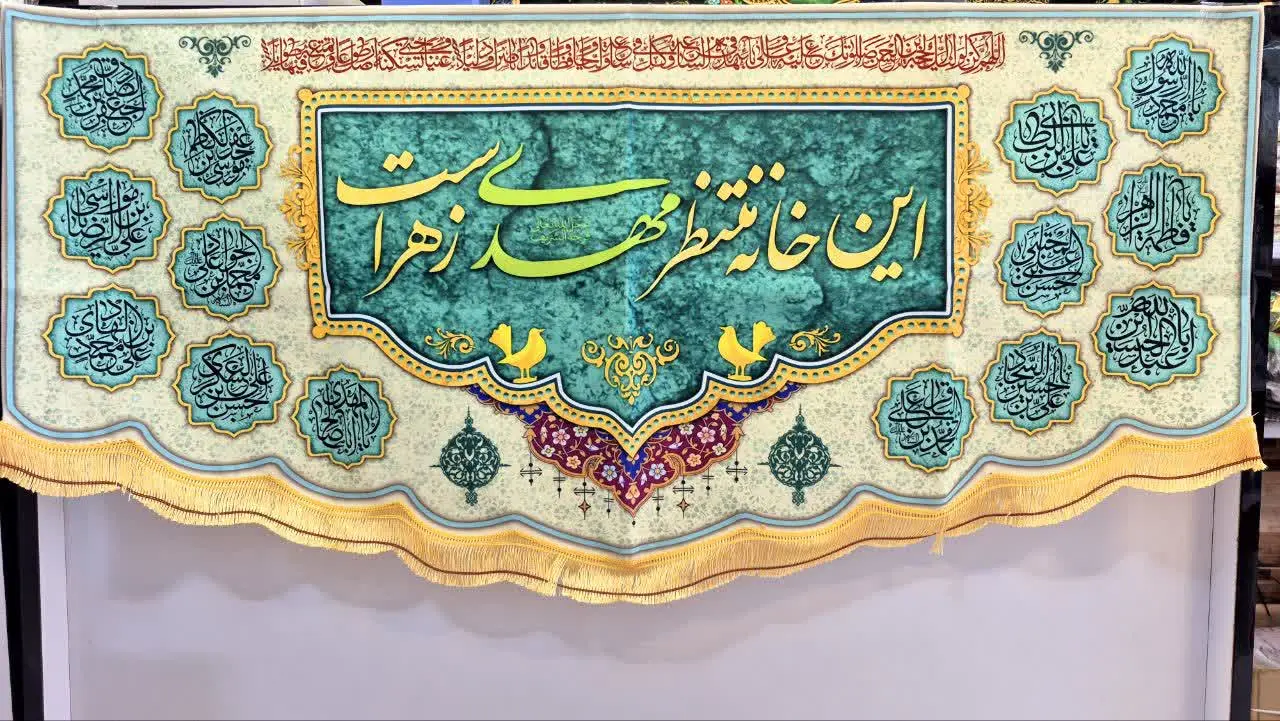 اللهم کن لولیک الحجة بن الحسن صلواتک علیه وعلی آبائه فی هذه الساعة وفی کل ساعة ولیا وحافظا وقائدا وناصرا ودلیلا وعینا حتی تسکنه ارضک طوعا وتمتعه فیها طویلا
این خانه منتظر مهدی زهراست
عجل الله تعالی فرجه الشریف
یا محمد رسول الله
علی بن ابی طالب
یا فاطمة الزهرا
حسن مجتبی
یا اباعبدالله الحسین
علی بن الحسین السجاد
محمد بن علی باقر
جعفر بن محمد الصادق
موسی بن جعفر الکاظم
علی بن موسی الرضا
محمد بن علی الجواد
علی بن محمد الهادی
حسن بن علی العسکری
یا اباصالح المهدی